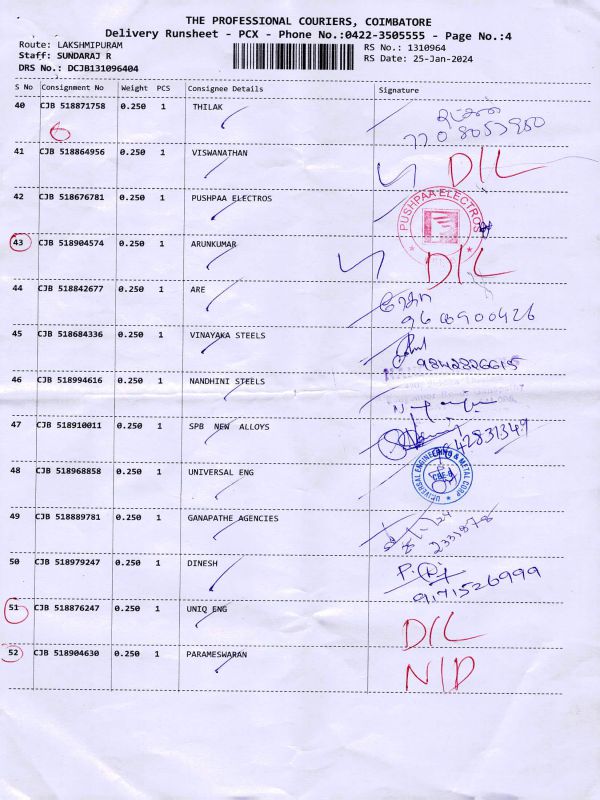 THE PROFESSIONAL COURIERS, COIMBATORE
Delivery Runsheet - PCX - Phone No.:0422-3505555 - Page No.:4
Route: LAKSHMIPURAM RS No.: 1310964
Staff: SUNDARAJ R RS Date: 25-Jan-2024
DRS No.: DCJB131096404
S No Consignment No Weight PCS Consignee Details Signature
40 CJB 518871758 0.250 1 THILAK
7708053950
41 CJB 518864956 0.250 1 VISWANATHAN D/L
42 CJB 518676781 0.250 1 PUSHPAA ELECTROS
PUSHPAA ELECTROS
43 CJB 518904574 0.250 1 ARUNKUMAR D/L
44 CJB 518842677 0.250 1 ARE
45 CJB 518684336 0.250 1 VINAYAKA STEELS
9842826615
46 CJB 518994616 0.250 1 NANDHINI STEELS
47 CJB 518910011 0.250 1 SPB NEW ALLOYS
48 CJB 518968858 0.250 1 UNIVERSAL ENG
UNIVERSAL ENGINEERING & METAL CORP
49 CJB 518889781 0.250 1 GANAPATHE AGENCIES
2331878
50 CJB 518979247 0.250 1 DINESH
9171526999
51 CJB 518876247 0.250 1 UNIQ ENG D/L
52 CJB 518904630 0.250 1 PARAMESWARAN N/D